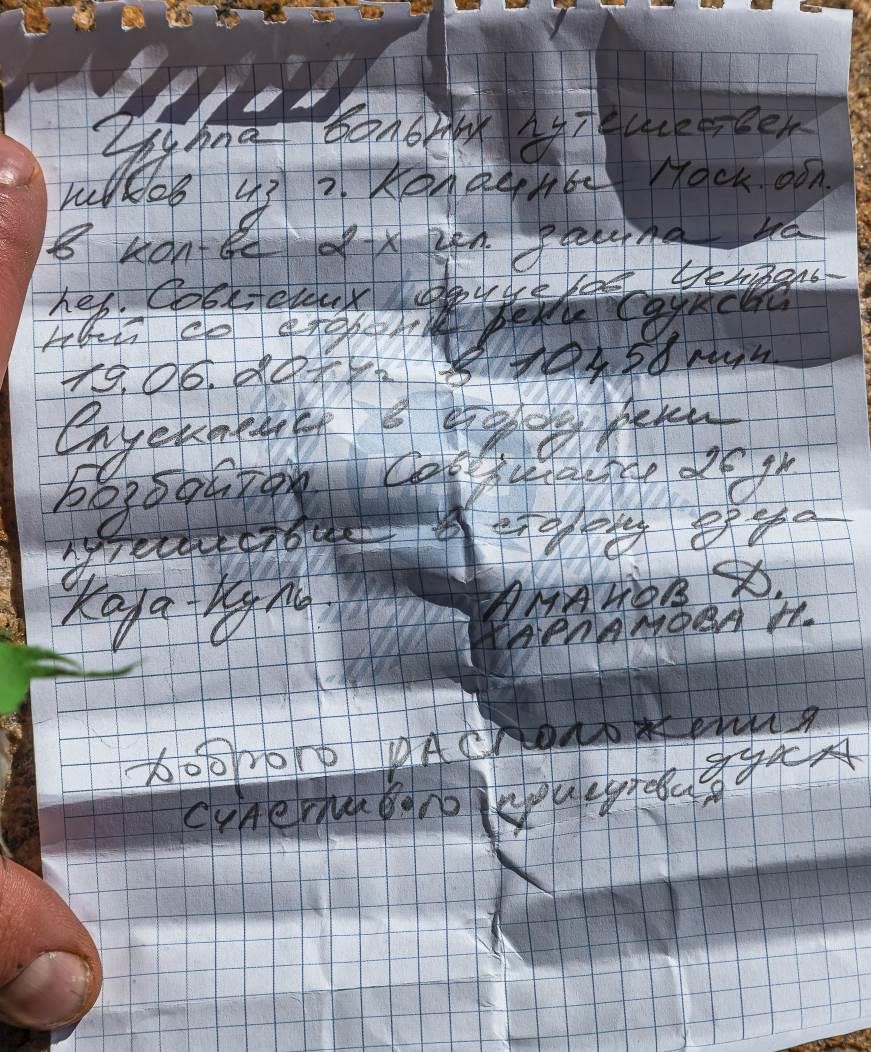 Группа вольных путешествен
ников из г. Коломны Моск. обл.
в кол-ве 2-х чел. зашла на
пер. Советских офицеров Централь-
ный со стороны реки
19.06. в 10ч 58 мин.
Спускаемся в сторону реки
Бозбайтал Совершается 26 дн
путешествие в сторону озера
Кара-Куль.
АМАНОВ Д.
ХАРЛАМОВА Н.
Доброго РАСПОЛОЖЕНИЯ
ДУХА
СЧАСТЛИВОГО